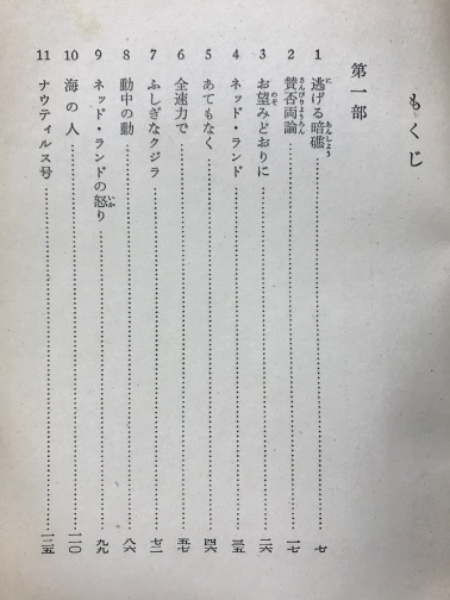 もくじ
第一部
1 逃げる暗礁 七
2 賛否両論 一七
3 お望みどおりに 二六
4 ネッド・ランド 三五
5 あてもなく 四六
6 全速力で 五七
7 ふしぎなクジラ 七二
8 動中の動 八六
9 ネッド・ランドの怒り 九九
10 海の人 一一〇
11 ナウティルス号 一二五